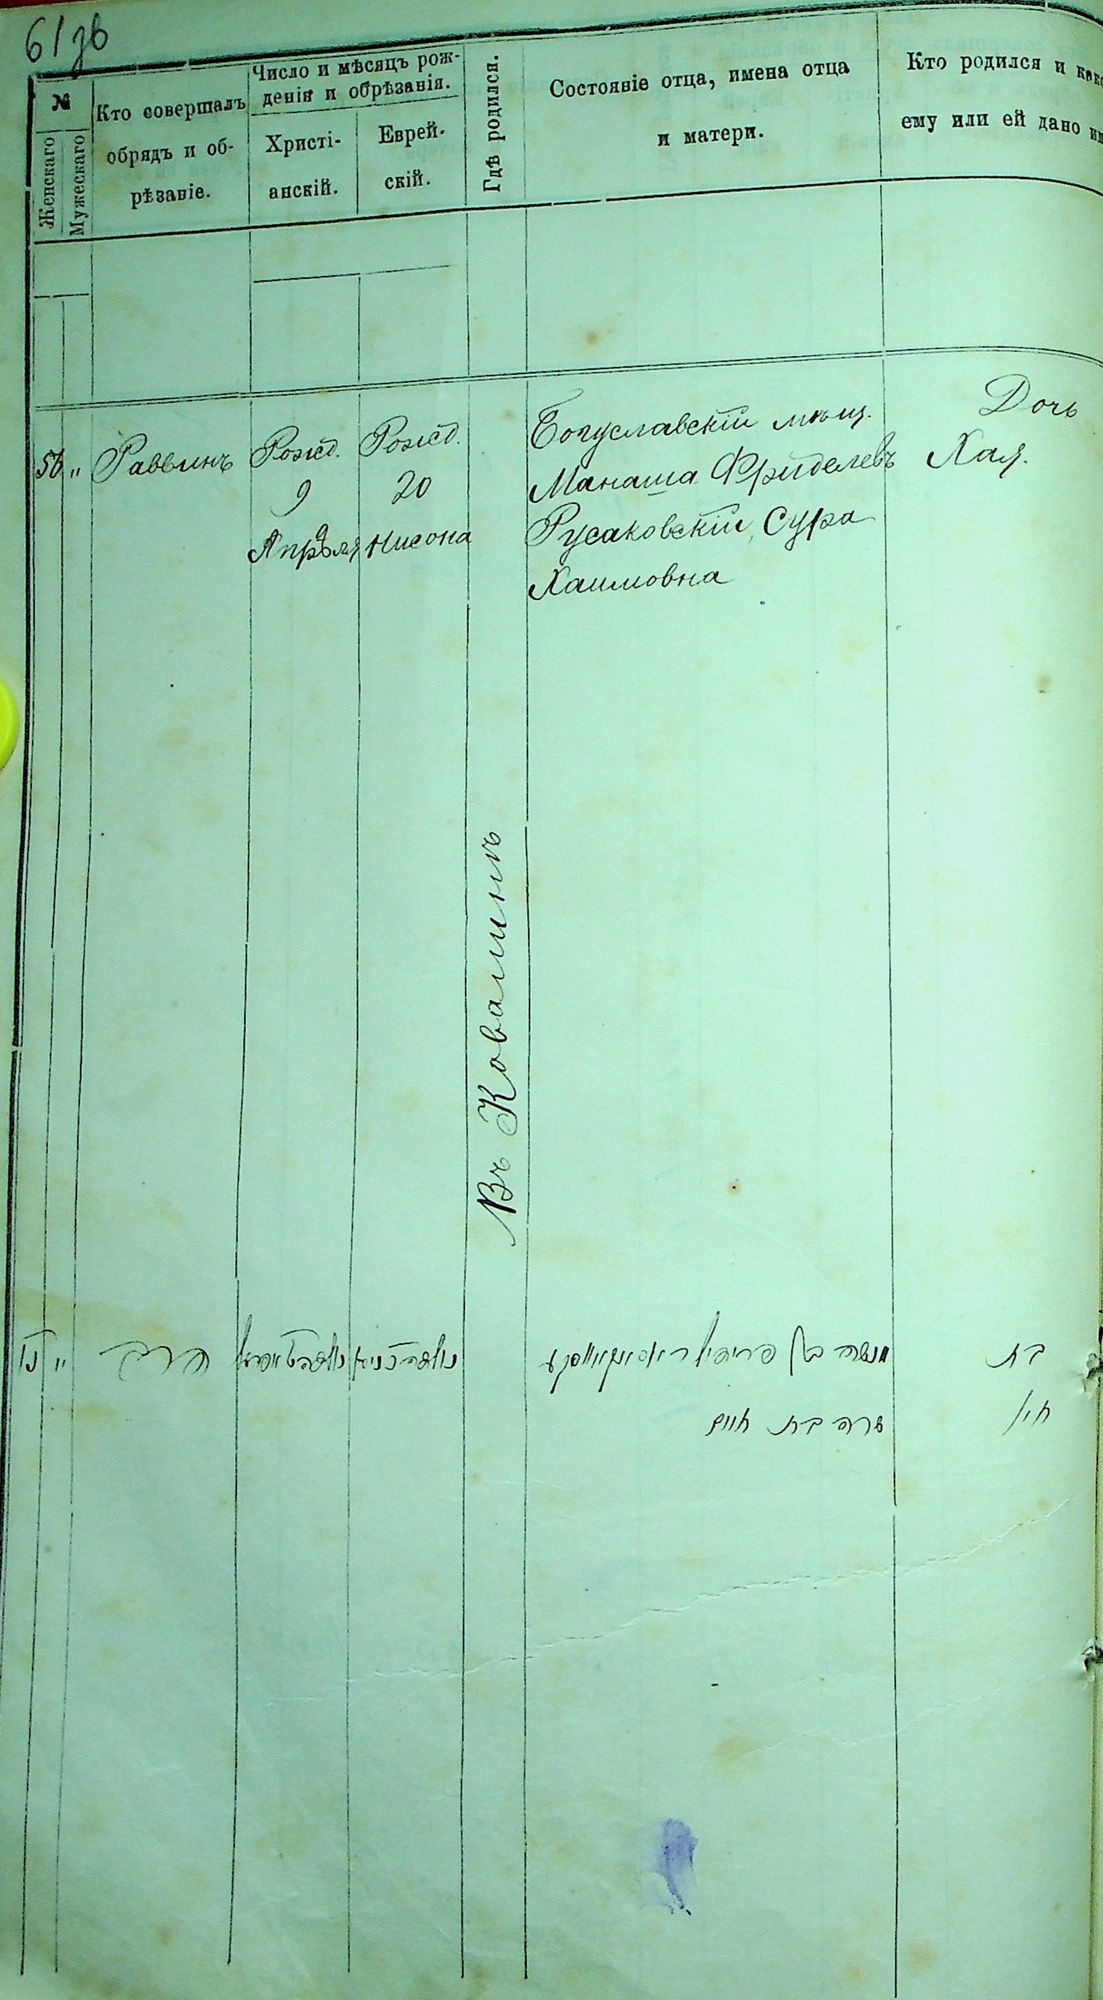 61 зв
№
Женскаго
Мужескаго
Кто совершалъ
обрядъ и об-
рѣзаніе.
Число и мѣсяцъ рож-
денія и обрѣзанія.
Христі-
анскій.
Еврей-
скій.
Гдѣ родился.
Состояніе отца, имена отца
и матери.
Кто родился и како
ему или ей дано им
56 "
Раввинъ
Рожд.
9
Апрѣля
Рожд.
20
Нисона
Въ Ковалинѣ
Богуславскій мѣщ.
Манаша Фриделевъ
Русаковскій, Сура
Хаимовна
Дочь
Хая.
נו "
הרב
מנשה בן
שרה בת חיים
בת
חיה